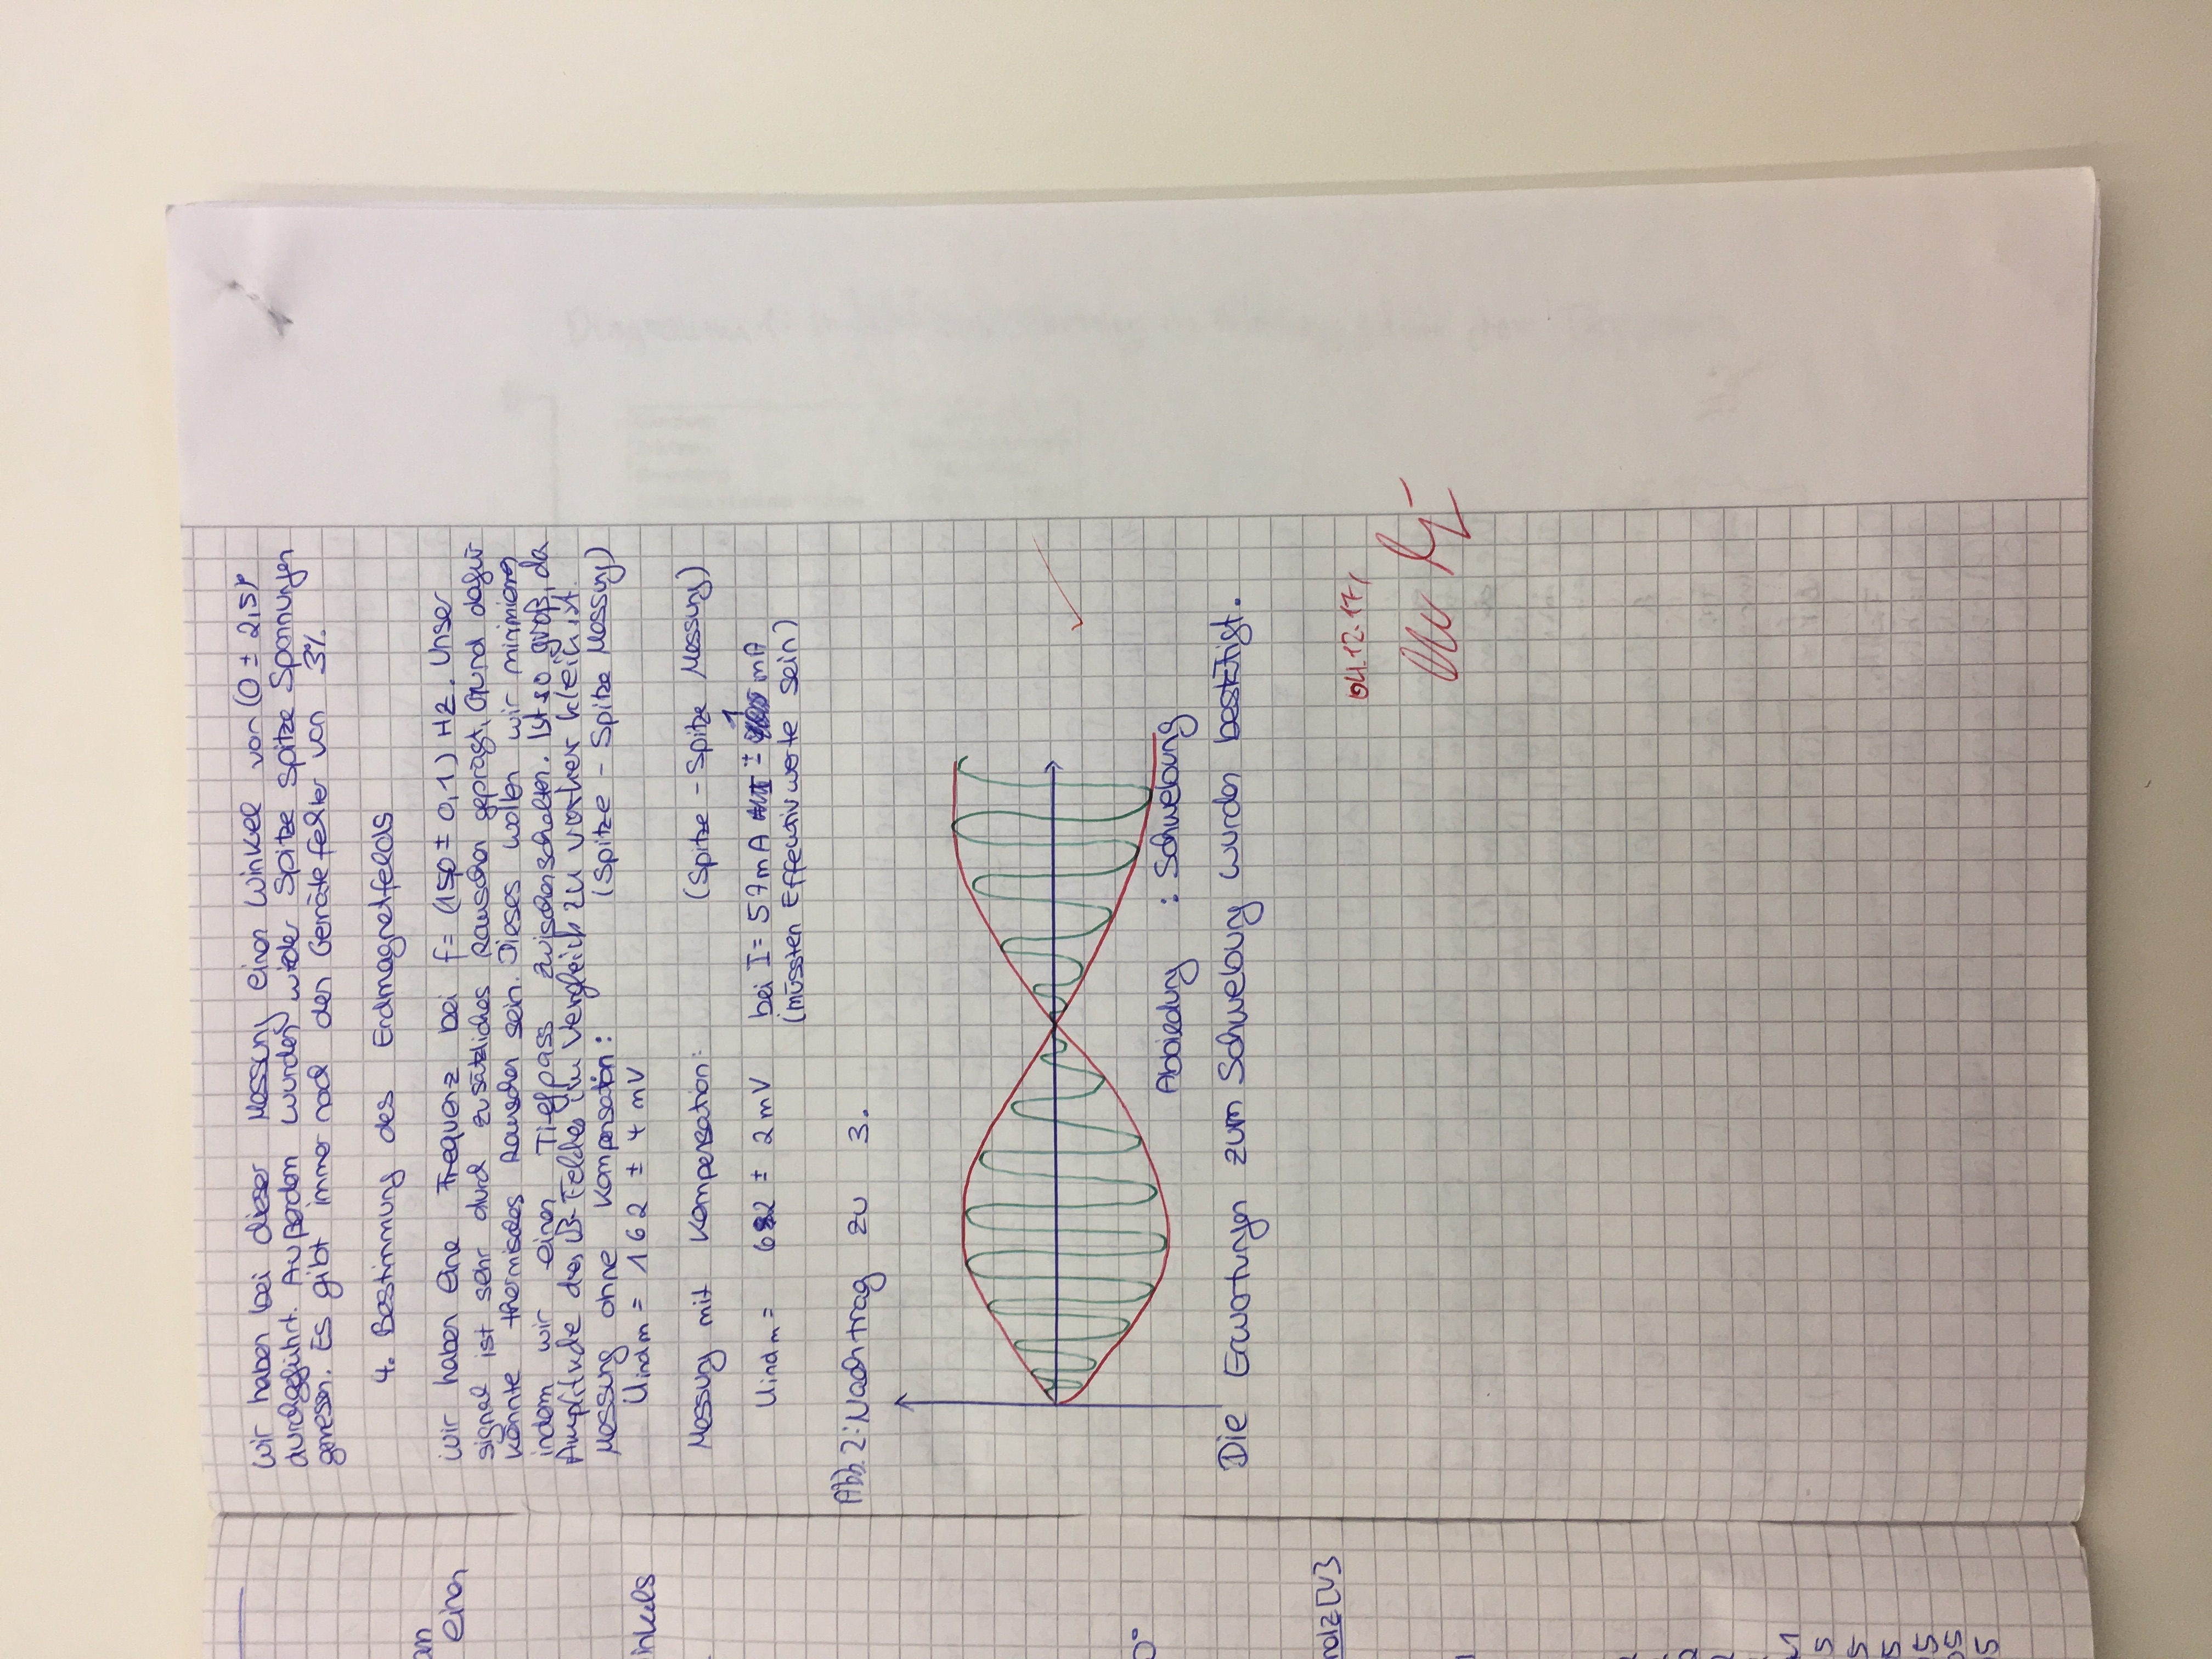 an
einen
inkels
0°
nolz [V]
1
2
2
1
5
5
5
05
05
5
Wir haben bei dieser Messung einen Winkel von (0 ± 2,5)°
durchgeführt. Außerdem wurden wieder Spitze Spitze Spannungen
gemessen. Es gibt immer noch den Gerätefehler von 3%.
4. Bestimmung des Erdmagnetfelds
Wir haben eine Frequenz bei f = (150 ± 0,1) Hz. Unser
signal ist sehr durch zusätzliches Rauschen geprägt, Grund dafür
könnte thermisches Rauschen sein. Dieses wollen wir minimieren
indem wir einen Tiefpass zwischenschalten. Ist so groß, da
Amplitude des B-Feldes im Vergleich zu vorher klein ist.
Messung ohne Kompensation: (Spitze - Spitze Messung)
Uindm = 162 ± 4 mV
Messung mit Kompensation: (Spitze - Spitze Messung)
Uindm = ± 2 mV bei I = 57mA ± 1 mA
(müssten Effektivwerte sein)
Abb. 2: Nachtrag zu 3.
Abbiedung : Schwebung
Die Erwartungen zum Schwebung wurden bestätigt.
04.12.17,